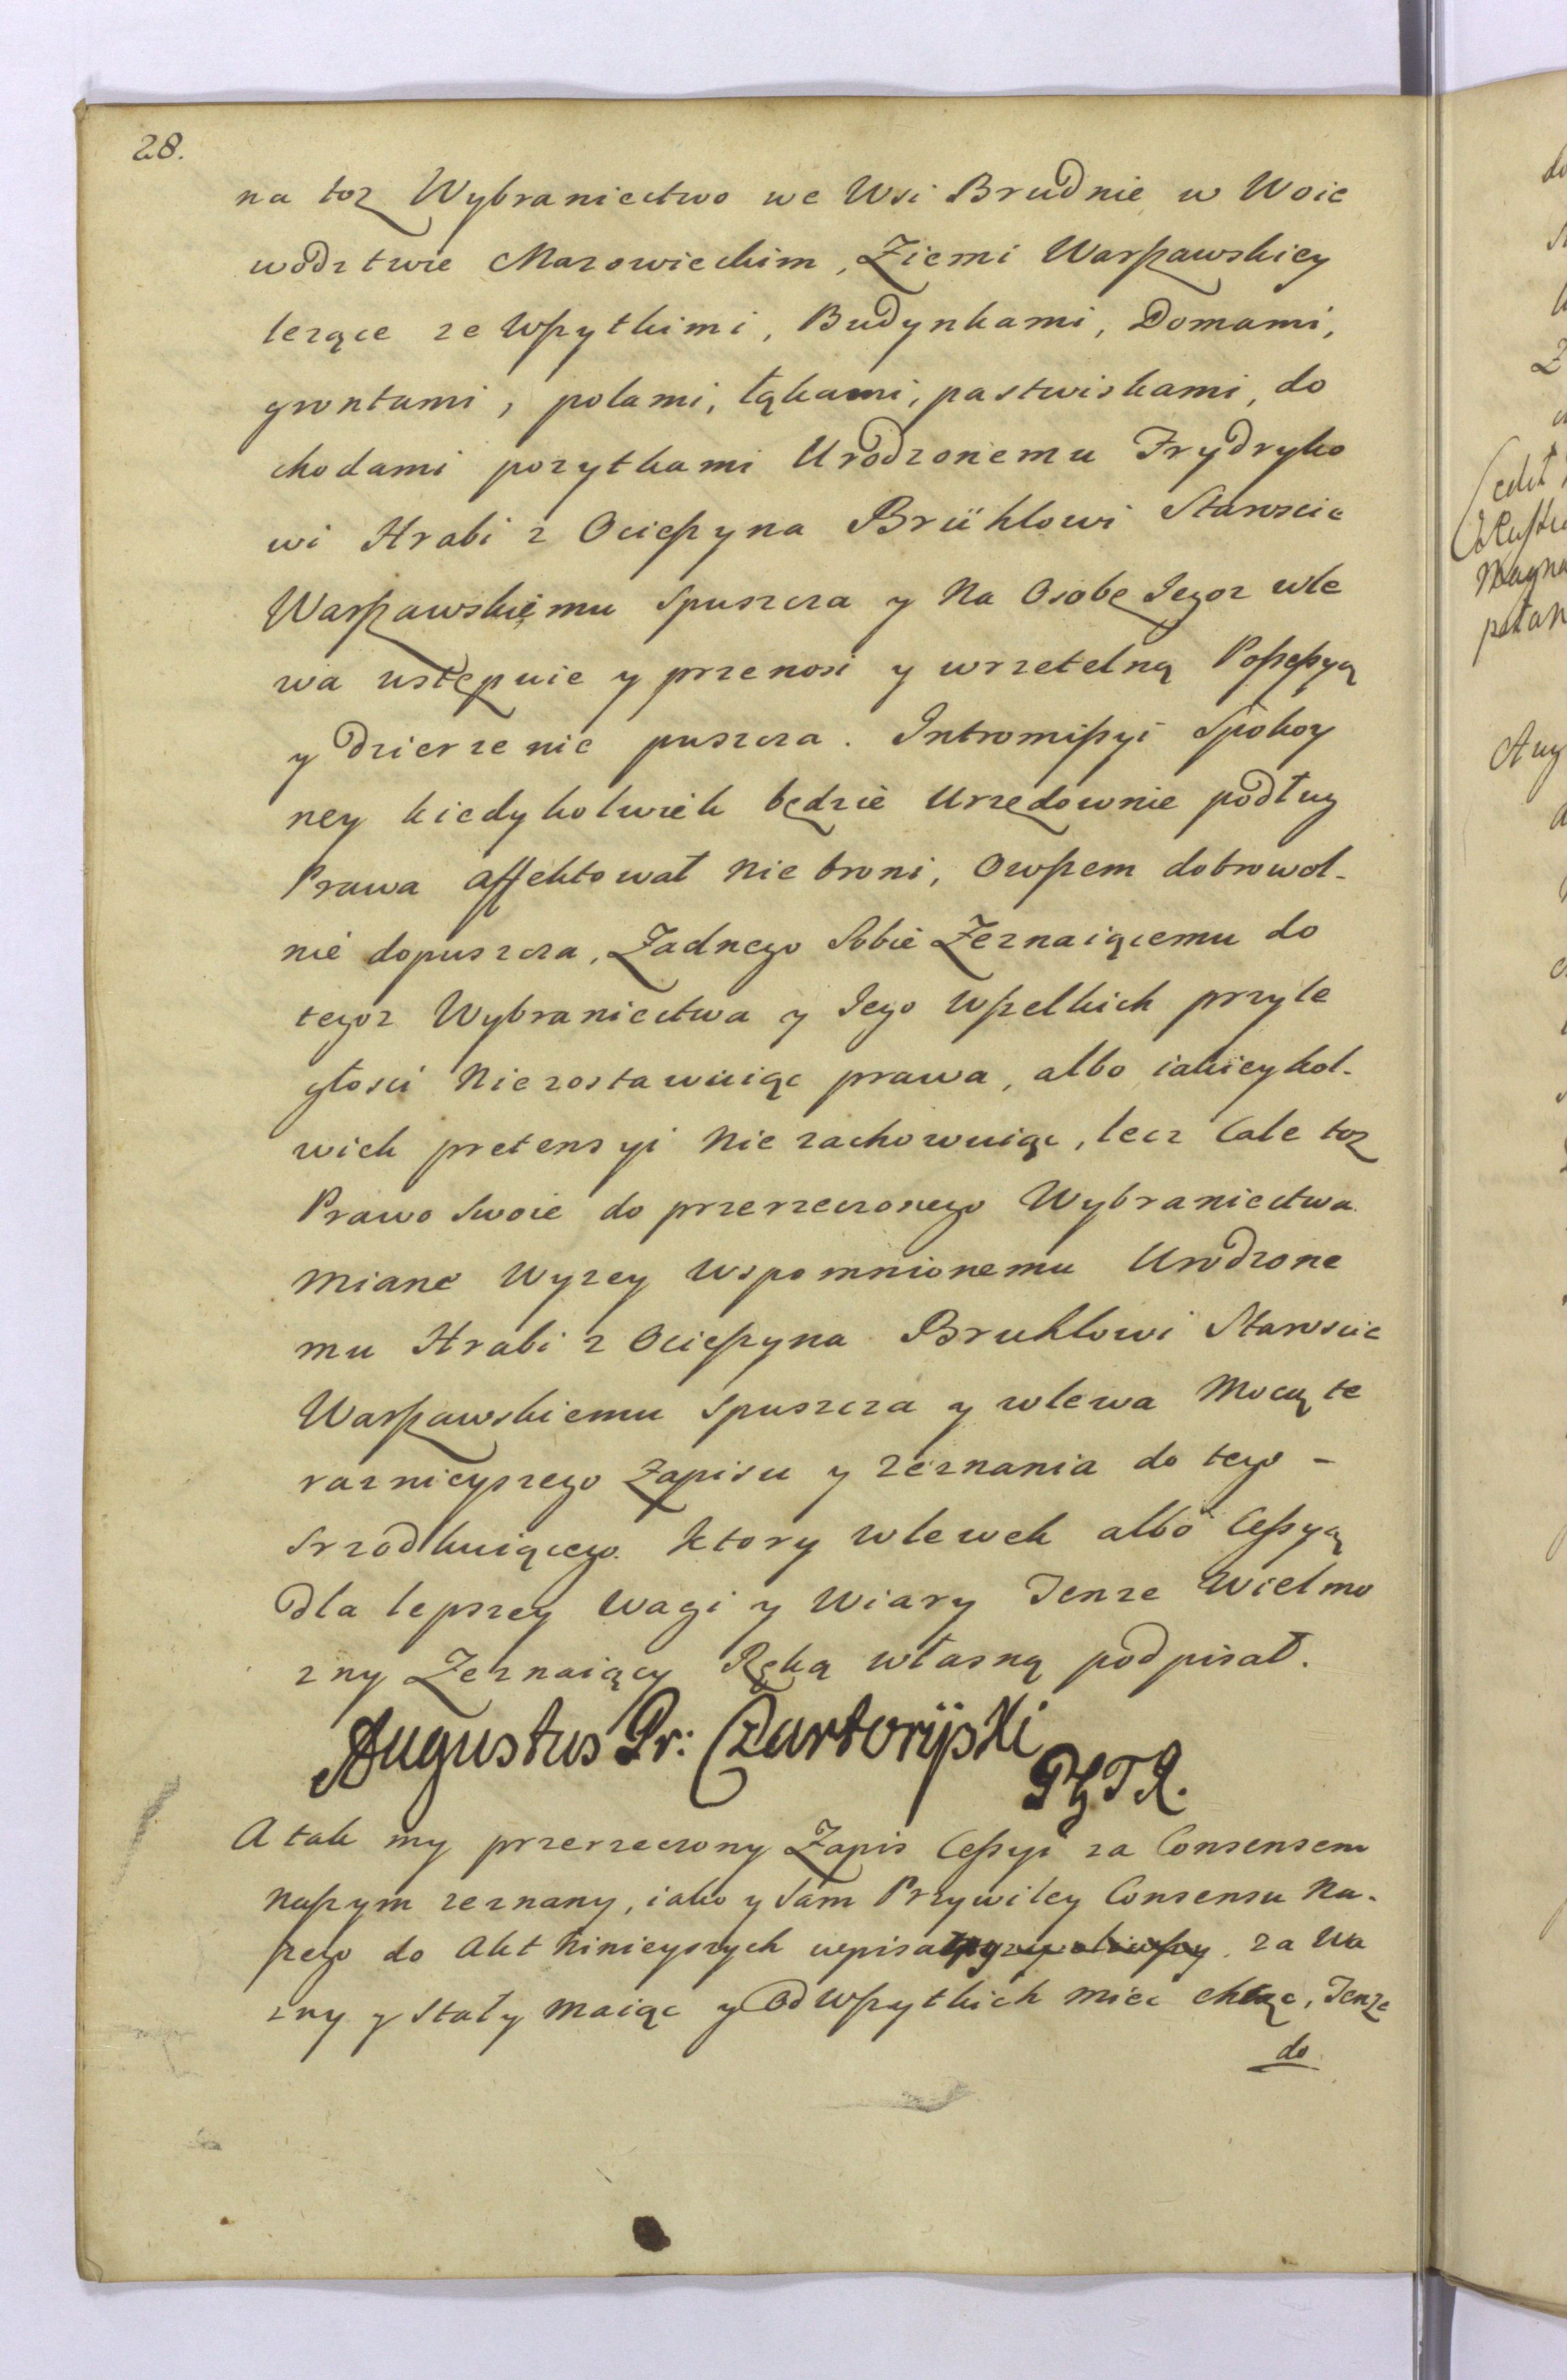 28.
na toz Wybraniectwo we Wsi Brudnie w Woie
wodztwie Mazowieckim, Ziemi Warszawskiey
lezące ze Wszytkimi, Budynkami, Domami,
gruntami, polami, łąkami, pastwiskami, do
chodami pozytkami Urodzonemu Frydryko
wi Hrabi z Ocieszyna Brühlowi Staroscie
Warszawskiemu spuszcza y Na Osobę Jegoz wle
wa ustępuie y przenosi y wrzetelną Possessyą
y Dzierzenie puszcza. Intromissyi Spokoy
ney kiedykolwiek będzie Urzędownie podług
Prawa affektował Nie broni, Owszem dobrowol-
nie dopuszcza, Zadnego Sobie Zeznaiącemu do
tegoz Wybraniectwa y Jego Wszelkich przyle
głosci Niezostawuiąc prawa, albo iakieykol-
wiek pretensyi Nie zachowuiąc, lecz Cale toz
Prawo Swoie do przerzeczonego Wybraniectwa
Miane Wyzey Wspomnionemu Urodzone
mu Hrabi z Ocieszyna Bruhlowi Staroscie
Warszawskiemu Spuszcza y wlewa Mocą te
raznieyszego Zapisu y Zeznania do tego -
srzodkuiącego. Ktory wlewek albo Cessyą
Dla lepszey Wagi y Wiary Tenze Wielmo
zny Zeznaiący Ręką własną podpisał.
Augustus Pr: Czartoryiski
A tak my przerzeczony Zapis Cessyi za Consensem
Naszym zeznany, iako y Sam Przywiley Consensu Na-
szego do Akt Ninieyszych wpisa za Wa
zny y Stały Maiąc y Od Wszytkich Miec chcąc, Tenze
do